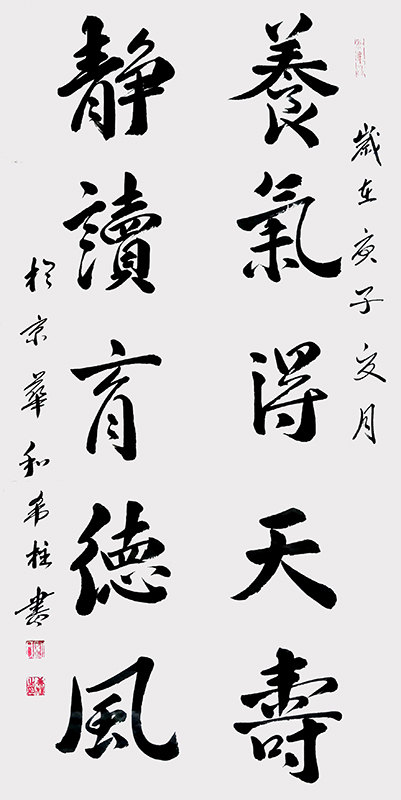 歲在庚子夏月
養氣得天壽
静讀育德風
於京華和柱書